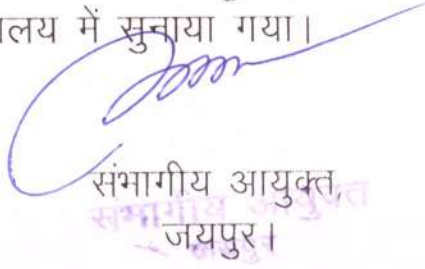 लय में सुनाया गया।
संभागीय आयुक्त,
संभागीय आयुक्त
जयपुर।